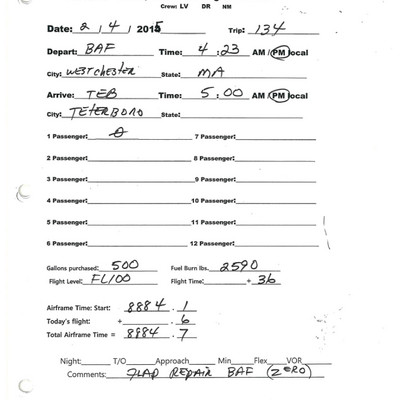 Crew: LV DR NM
Date: 2 / 4 / 2015 Trip: 134
Depart: BAF Time: 4 : 23 AM / PM local
City: WESTCHESTER State: MA
Arrive: TEB Time: 5 : 00 AM / PM local
City: TETERBORO State:
1 Passenger: 0 7 Passenger:
2 Passenger: 8 Passenger:
3 Passenger: 9 Passenger:
4 Passenger: 10 Passenger:
5 Passenger: 11 Passenger:
6 Passenger: 12 Passenger:
Gallons purchased: 500 Fuel Burn lbs. 2590
Flight Level: FL100 Flight Time: + 36
Airframe Time: Start: 8884 . 1
Today's flight: + . 6
Total Airframe Time = 8884 . 7
Night: T/O Approach Min Flex VOR
Comments: FLAP REPAIR BAF (ZERO)